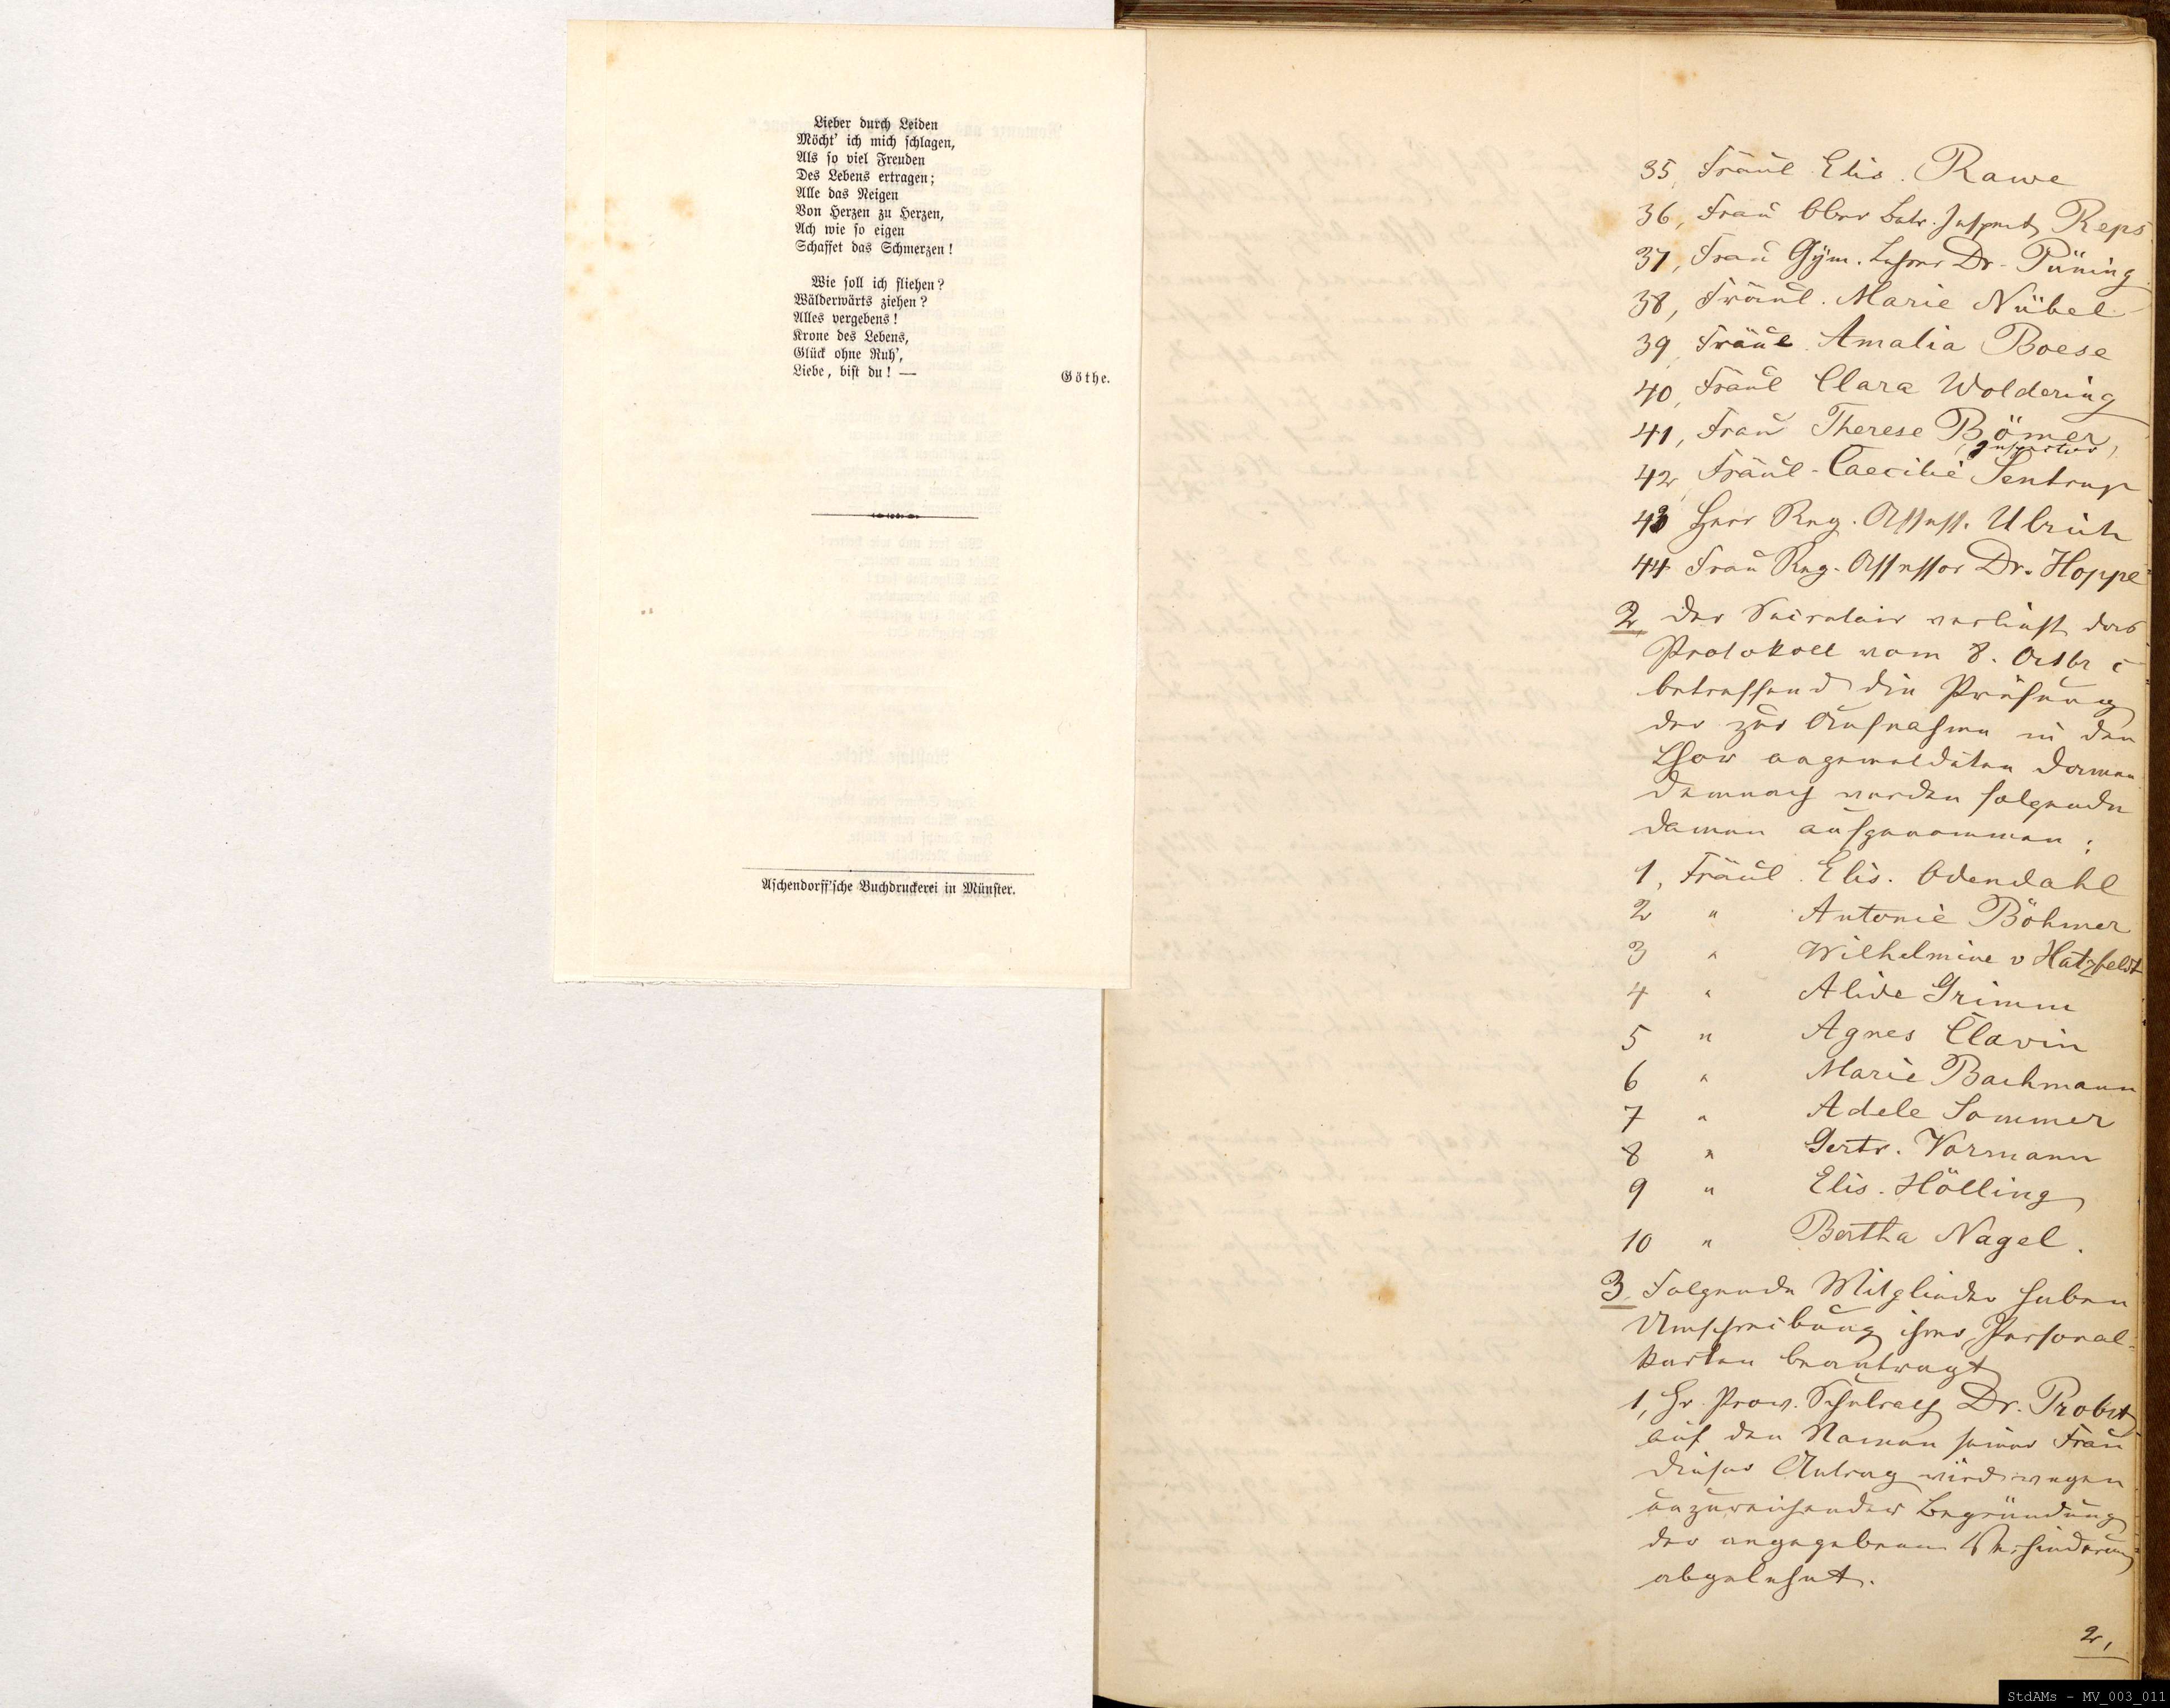 Lieber durch Leiden
Möcht' ich mich schlagen,
Als so viel Freuden
Des Lebens ertragen;
Alle das Neigen
Von Herzen zu Herzen,
Ach wie so eigen
Schaffet das Schmerzen!
Wie soll ich fliehen?
Wälderwärts ziehen?
Alles vergebens!
Krone des Lebens,
Glück ohne Ruh',
Liebe, bist du! —
Göthe.
Aschendorff'sche Buchdruckerei in Münster.
35, Fräul. Elis. Rawe
36, Frau Ober Betr. Inspect. Reps
37, Frau Gym. Lehrer Dr. Püning
38, Fräul. Marie Nübel
39, Fräul. Amalia Boese
40, Fräul Clara Woldering
41, Frau Therese Bömer
(Inspector)
42, Fräul. Caecilie Sentrup
43 Herr Reg. Assess. Ulrich
44 Frau Reg. Assessor Dr. Hoppe
2, Der Secretair verliest das
Protokoll vom 8. Octbr c
betreffend die Prüfung
der zur Aufnahme in den
Chor angemeldeten Damen
Demnach werden folgende
Damen aufgenommen:
1, Fräul. Elis. Odendahl
2 " Antonie Böhmer
3 " Wilhelmine v Hatzfeldt
4 " Alide Grimm
5 " Agnes Clavin
6 " Marie Bachmann
7 " Adele Sommer
8 " Gertr. Vormann
9 " Elis. Hölling
10 " Bertha Nagel.
3, Folgende Mitglieder haben
Umschreibung ihrer Personal-
karten beantragt
1, Hr. Prov. Schulrath Dr. Probst
auf den Namen seiner Frau
dieser Antrag wird wegen
unzureichender Begründung
der angegebenen Verhinderung
abgelehnt.
2,
StdAMs - MV_003_011